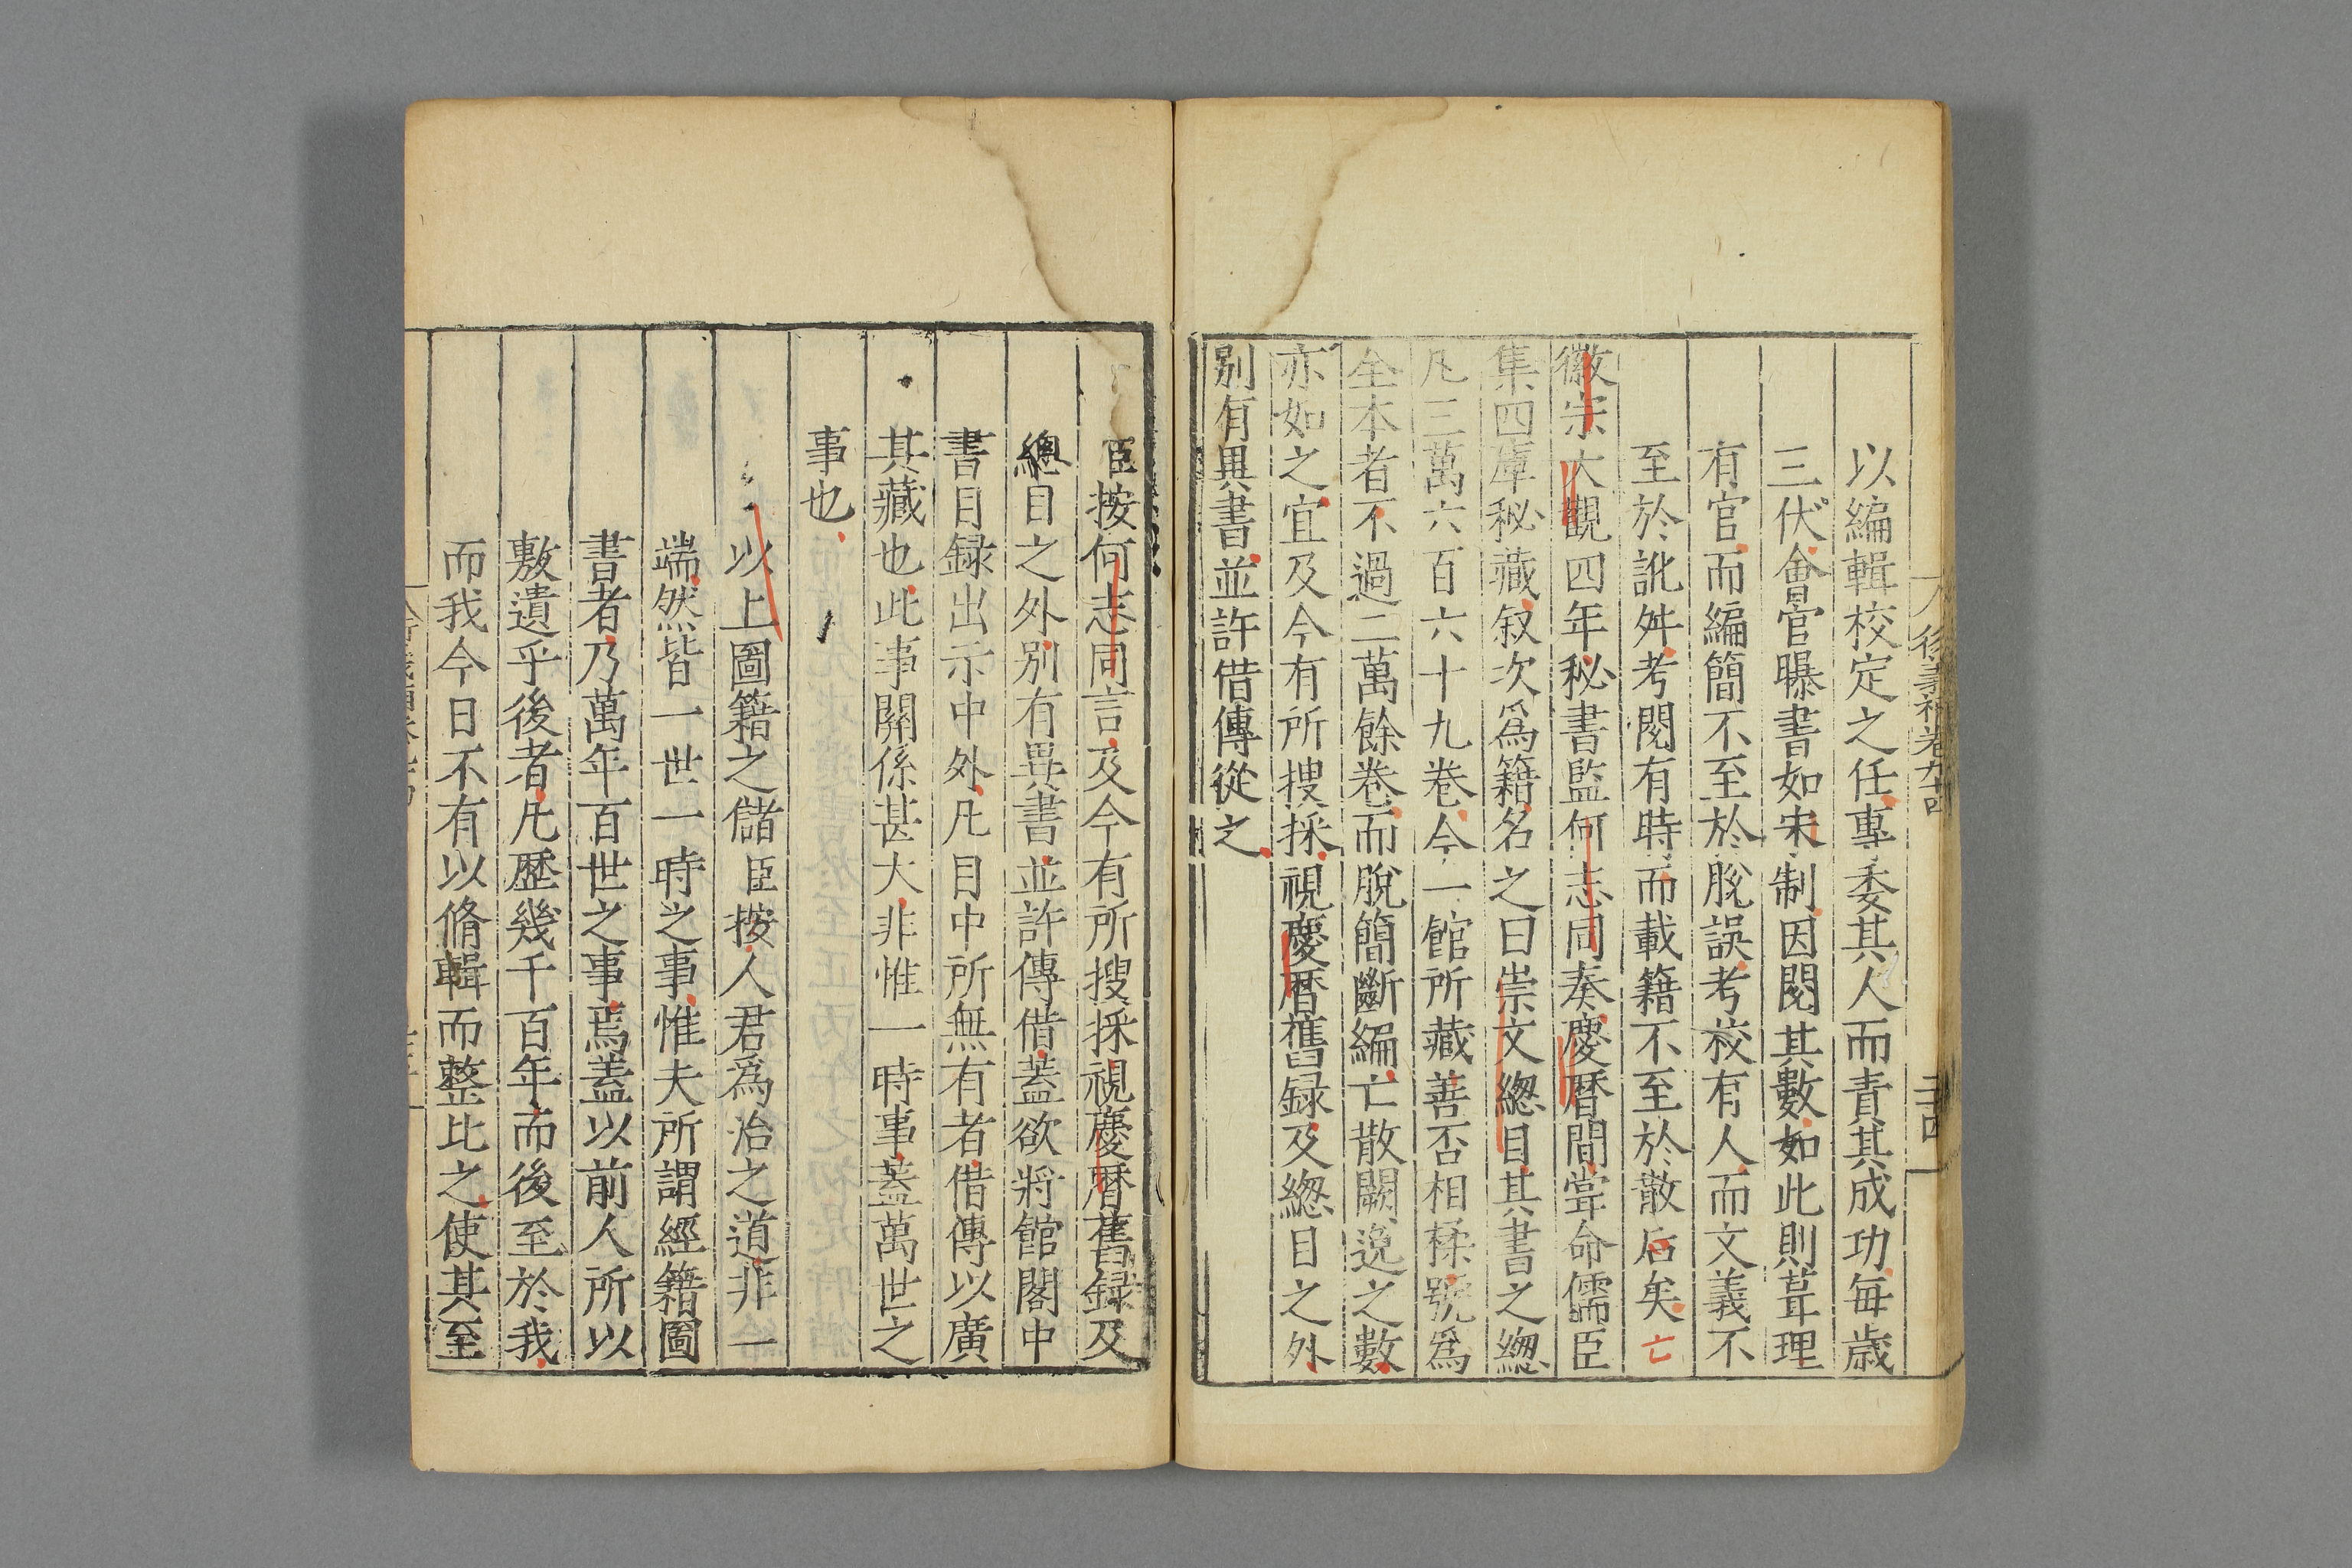 以編輯校定之任專委其人而責其成功每歲
三伏會官曝書如宋制因閱其數如此則葺理
有官而編簡不至於脫誤考校有人而文義不
至於訛舛考閱有時而載籍不至於散后矣亡
徽宗大觀四年秘書監何志同奏慶曆間甞命儒臣
集四庫秘藏叙次爲籍名之曰崇文緫目其書之緫
凡三萬六百六十九卷今一館所藏善否相揉號爲
全本者不過二萬餘卷而脫簡斷編亡散闕逸之數
亦如之宜及今有所搜採視慶曆舊録及緫目之外
别有異書並許借傳從之
臣按何志同言及今有所搜採視慶曆舊録及
總目之外別有異書並許傳借蓋欲將館閣中
書目録出示中外凡目中所無有者借傳以廣
其藏也此事關係甚大非惟一時事蓋萬世之
事也
以上圖籍之儲臣按人君爲治之道非一
端然皆一世一時之事惟夫所謂經籍圖
書者乃萬年百世之事焉蓋以前人所以
敷遺乎後者凡歷幾千百年而後至於我
而我今日不有以脩輯而整比之使其至